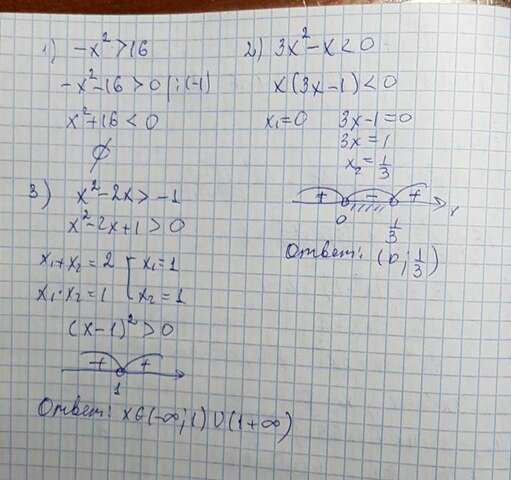 1) -x² > 16
-x² - 16 > 0 | : (-1)
x² + 16 < 0
∅
2) 3x² - x < 0
x(3x - 1) < 0
x₁ = 0 3x - 1 = 0
3x = 1
x₂ = 1/3
+ - +
0 1/3 x
Ответ: (0; 1/3)
3) x² - 2x > -1
x² - 2x + 1 > 0
x₁ + x₂ = 2 [ x₁ = 1
x₁ · x₂ = 1 [ x₂ = 1
(x - 1)² > 0
+ +
1
Ответ: x ∈ (-∞; 1) ∪ (1 + ∞)